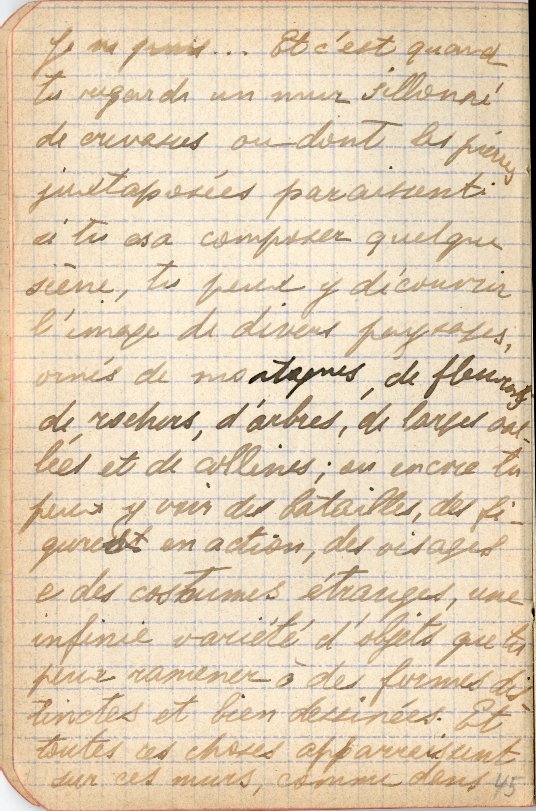 Je ne puis... Et c'est quand
tu regards un mur sillonné
de crevasses ou dont les pierres
juxtaposées paraissent.
si tu asa composer quelque
scène, tu peux y découvrir
l'image de divers paysages,
ornés de montagnes, de fleuves,
de rochers, d'arbres, de larges val-
lées et de collines; ou encore tu
peux y voir des batailles, des fi-
gures en action, des visages
e des costumes étranges, une
infinie variété d'objets que tu
peux ramener à des formes dis-
tinctes et bien dessinées. Et
toutes ces choses apparaissent
sur ces murs, comme dans 45